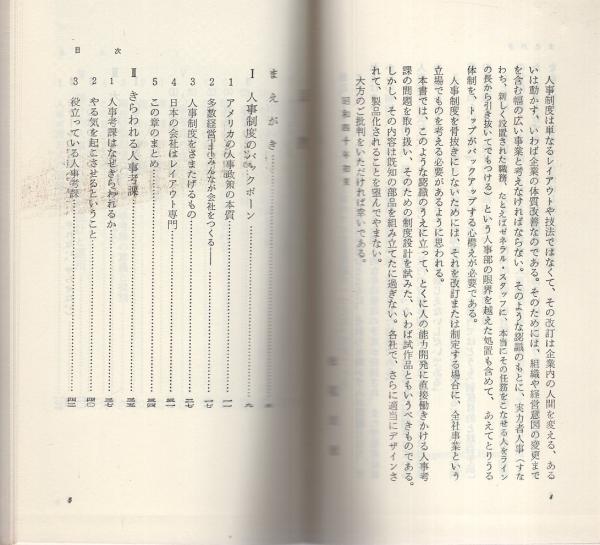 人事制度は単なるレイアウトや技法ではなくて、その改訂は企業内の人間を変える、ある
いは動かす、いわば企業の体質改善なのである。そのためには、組織や経営意図の変更まで
を含む幅の広い事業と考えなければならない。そのような認識のもとに、実力者人事（すな
わち、新しく設置された職務、たとえばゼネラル・スタッフに、本当にその任務をこなせる人をライン
の長から引き抜いてでもつける）という人事部の限界を越えた処置も含めて、あえてとりうる
体制を、トップがバックアップする心構えが必要である。
人事制度を骨抜きにしないためには、それを改訂または制定する場合に、全社事業という
立場でものを考える必要があるように思われる。
本書では、このような認識のうえに立って、とくに人の能力開発に直接働きかける人事考
課の問題を取り扱い、そのための制度設計を試みた、いわば試作品ともいうべきものである。
しかし、その内容は既知の部品を組み立てたに過ぎない。各社で、さらに適当にデザインさ
れて、製品化されることを望んでやまない。
大方のご批判をいただければ幸いである。
昭和四十年初夏
4
目次
まえがき
Ⅰ 人事制度のバックボーン…………九
1 アメリカの人事政策の本質…………一一
2 多数経営―みんなが会社をつくる―…………一七
3 人事制度をさまたげるもの…………二七
4 日本の会社はレイアウト専門…………三一
5 この章のまとめ…………三四
Ⅱ きらわれる人事考課…………三五
1 人事考課はなぜきらわれるか…………三七
2 やる気を起こさせるということ…………四〇
3 役立っている人事考課…………四二
5